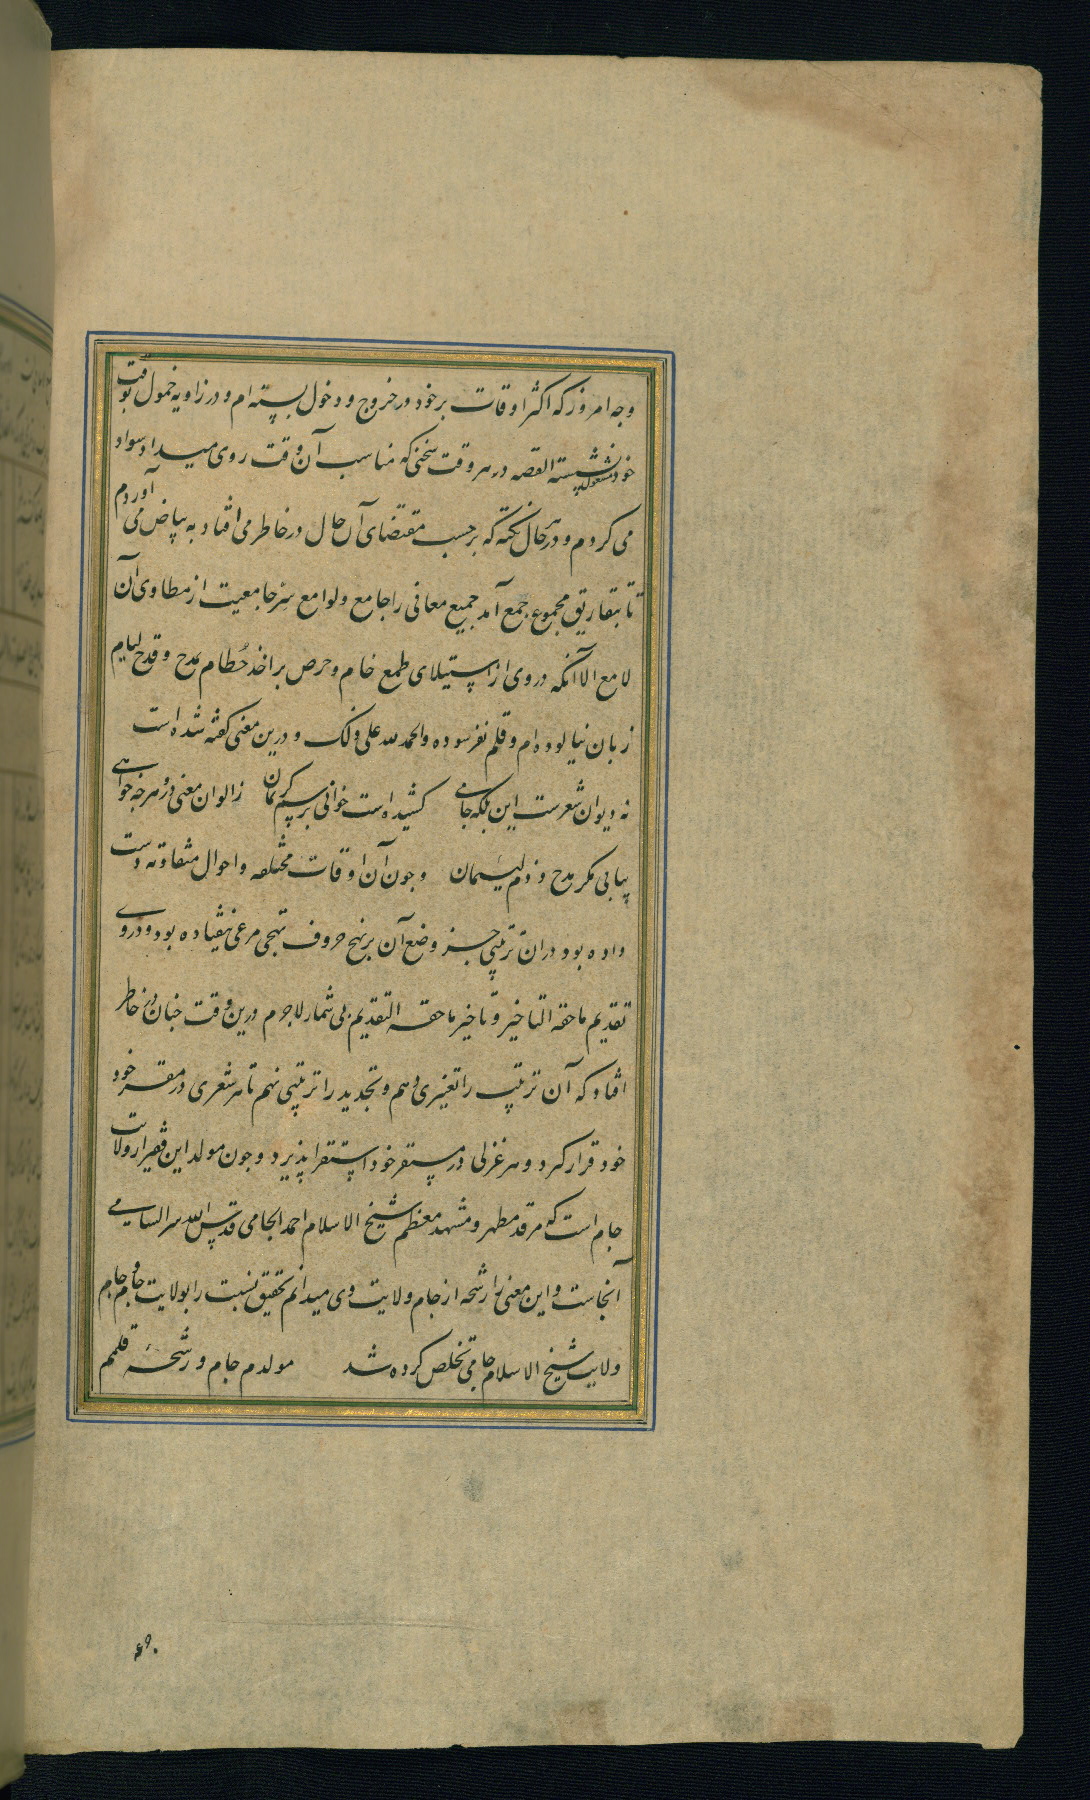 وجه امروز که اکثر اوقات بر خود در خروج و دخول بسته ام و در زاویه خمول بوقت
خود مشغول نشسته القصه در هر وقت سخنی که مناسب آن وقت روی میداد سواد
می کردم و در هر حال نکته که بر حسب مقتضای آن حال در خاطر می افتاد به بیاض می آوردم
تا بتفاریق مجموعه جمع آمد جمیع معانی را جامع و لوامع سر جامعیت از مطاوی آن
لامع الا آنکه در وی از استیلای طمع خام و حرص بر اخذ حُطام بمدح و قدح لیام
زبان نیالوده ام و قلم نفرسوده والحمد لله علی ذلک و درین معنی گفته شده است
نه دیوان شعرست این بلکه جامی کشیده است خوانی برسم کریمان ز الوان معنی درو هرچه خواهی
بیابی مگر مدح و ذم لئیمان و چون آن اوقات مختلفه و احوال متفاوته دست
داده بود در ان ترتیبی جز وضع آن بر نهج حروف تهجی مرعی نیفتاده بود و در وی
تقدیم ما حقه التاخیر و تاخیر ما حقه التقدیم بی شمار لاجرم درین وقت چنان در خاطر
افتاد که آن ترتیب را تغییری دهم و تجدید را ترتیبی نهم تا هر شعری در مقر خود
خود قرار گیرد و هر غزلی در مستقر خود استقرار پذیرد و چون مولد این فقیر از ولایت
جام است که مرقد مطهر و مشهد معظم شیخ الاسلام احمد الجامی قدس الله سره السامی
آنجاست و این معنی را رشحه از جام ولایت وی میدانم تحقیق نسبت را بولایت جام و جام
ولایت شیخ الاسلام جامی تخلص کرده شد مولدم جام و رشحهٔ قلمم